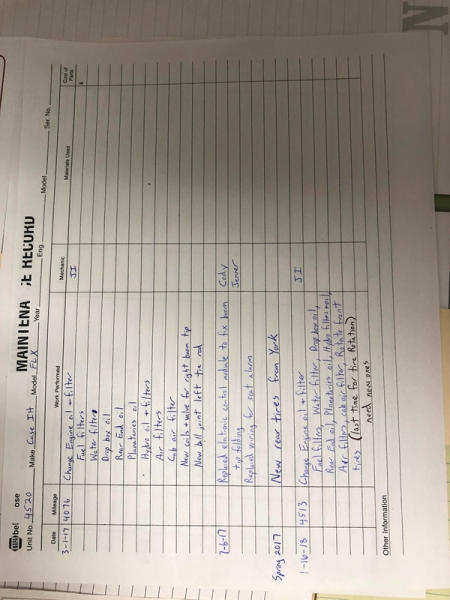 bel ose
MAINTENA CE RECORD
Unit No. 4520 Make Case IH Model FLX Year Eng. Model Ser. No.
Date Mileage Work Performed Mechanic Materials Used Cost of Parts
3-1-17 4076 Change Engine oil + filter JJ $
Fuel filters
Water filter
Drop box oil
Rear End oil
Planataries oil
Hydro oil + filters
Air filters
Cab air filter
New coils + valve for right boom tip
New ball joint left tie rod
7-6-17 Replaced eletronic control module to fix boom Cody
tip folding Jenner
Replaced wiring for seat alarm
Spring 2017 New rear tires from York
1-16-18 4513 Change Engine oil + filter JJ
Fuel filters, Water filter, Drop box oil,
Rear End oil, Planataries oil, Hydro filters + oil,
Air filters, cab air filter, Rotate front
tires (last time for tire Rotation)
need new ones
Other Information
N